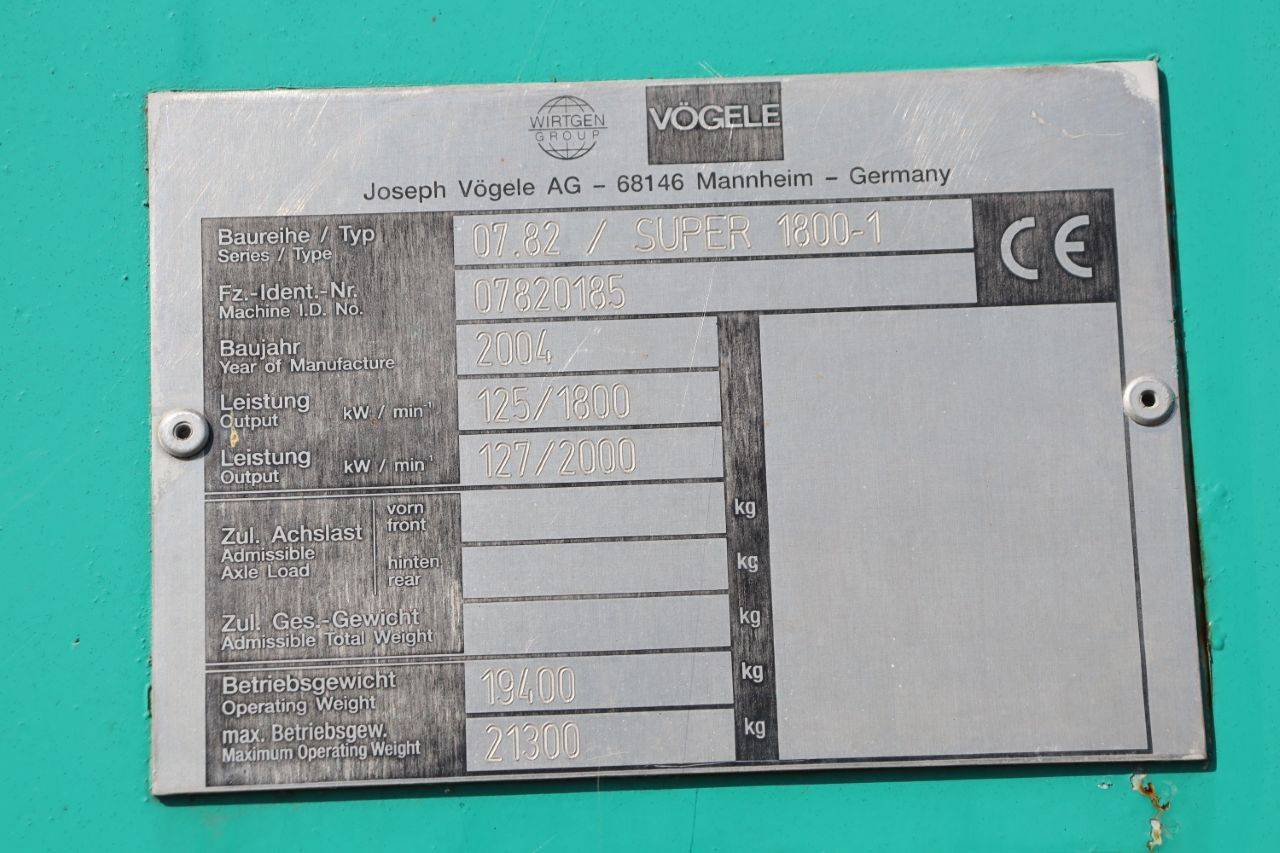 WIRTGEN
GROUP
VÖGELE
Joseph Vögele AG – 68146 Mannheim – Germany
Baureihe / Typ
Series / Type
07.82 / SUPER 1800-1
CE
Fz.-Ident.-Nr.
Machine I.D. No.
07820185
Baujahr
Year of Manufacture
2004
Leistung
Output
kW / min⁻¹
125/1800
Leistung
Output
kW / min⁻¹
127/2000
Zul. Achslast
Admissible
Axle Load
vorn
front
kg
hinten
rear
kg
Zul. Ges.-Gewicht
Admissible Total Weight
kg
Betriebsgewicht
Operating Weight
19400
kg
max. Betriebsgew.
Maximum Operating Weight
21300
kg